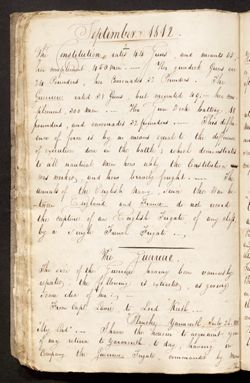 September 1812.
The Constitution, rates 44 Guns, and mounts 55,
her compliment 450 men. — The gundeck Guns are
24 Pounders, her Carronades 32 Pounders. The
Guerriere rated 38 Guns, but mounted 49, — her com-
pliment, 300 men. The Gun Deck battery, 18
pounders, and carronades 32 pounders. — This differ-
ence of force is by no means equal to the difference
of execution done in the battle, which demonstrates
to all nautical men how ably the Constitution
was worked, and how bravely fought. — The
annals of the English Navy, since the War be-
tween England and France do not record
the capture of an English Frigate of any class,
by a single French Frigate. —
The Guerriere.
The size of the Guerriere having been variously
reported, the following is inserted, as giving
some idea of her; —
From Capt. to Lord Keith. —
Yarmouth, July
My Lord — I have the honor to acquaint you
of my return to Yarmouth to day, having in
Company the Guerriere Frigate commanded by